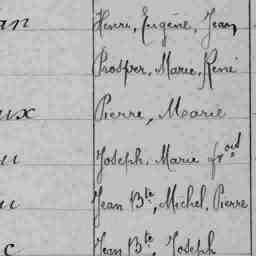 an Henri, Eugène, Jean
Prosper, Marie, René
ux Pierre, Marie
u Joseph, Marie fçois
u Jean Bte, Michel, Pierre
c Jean Bte, Joseph